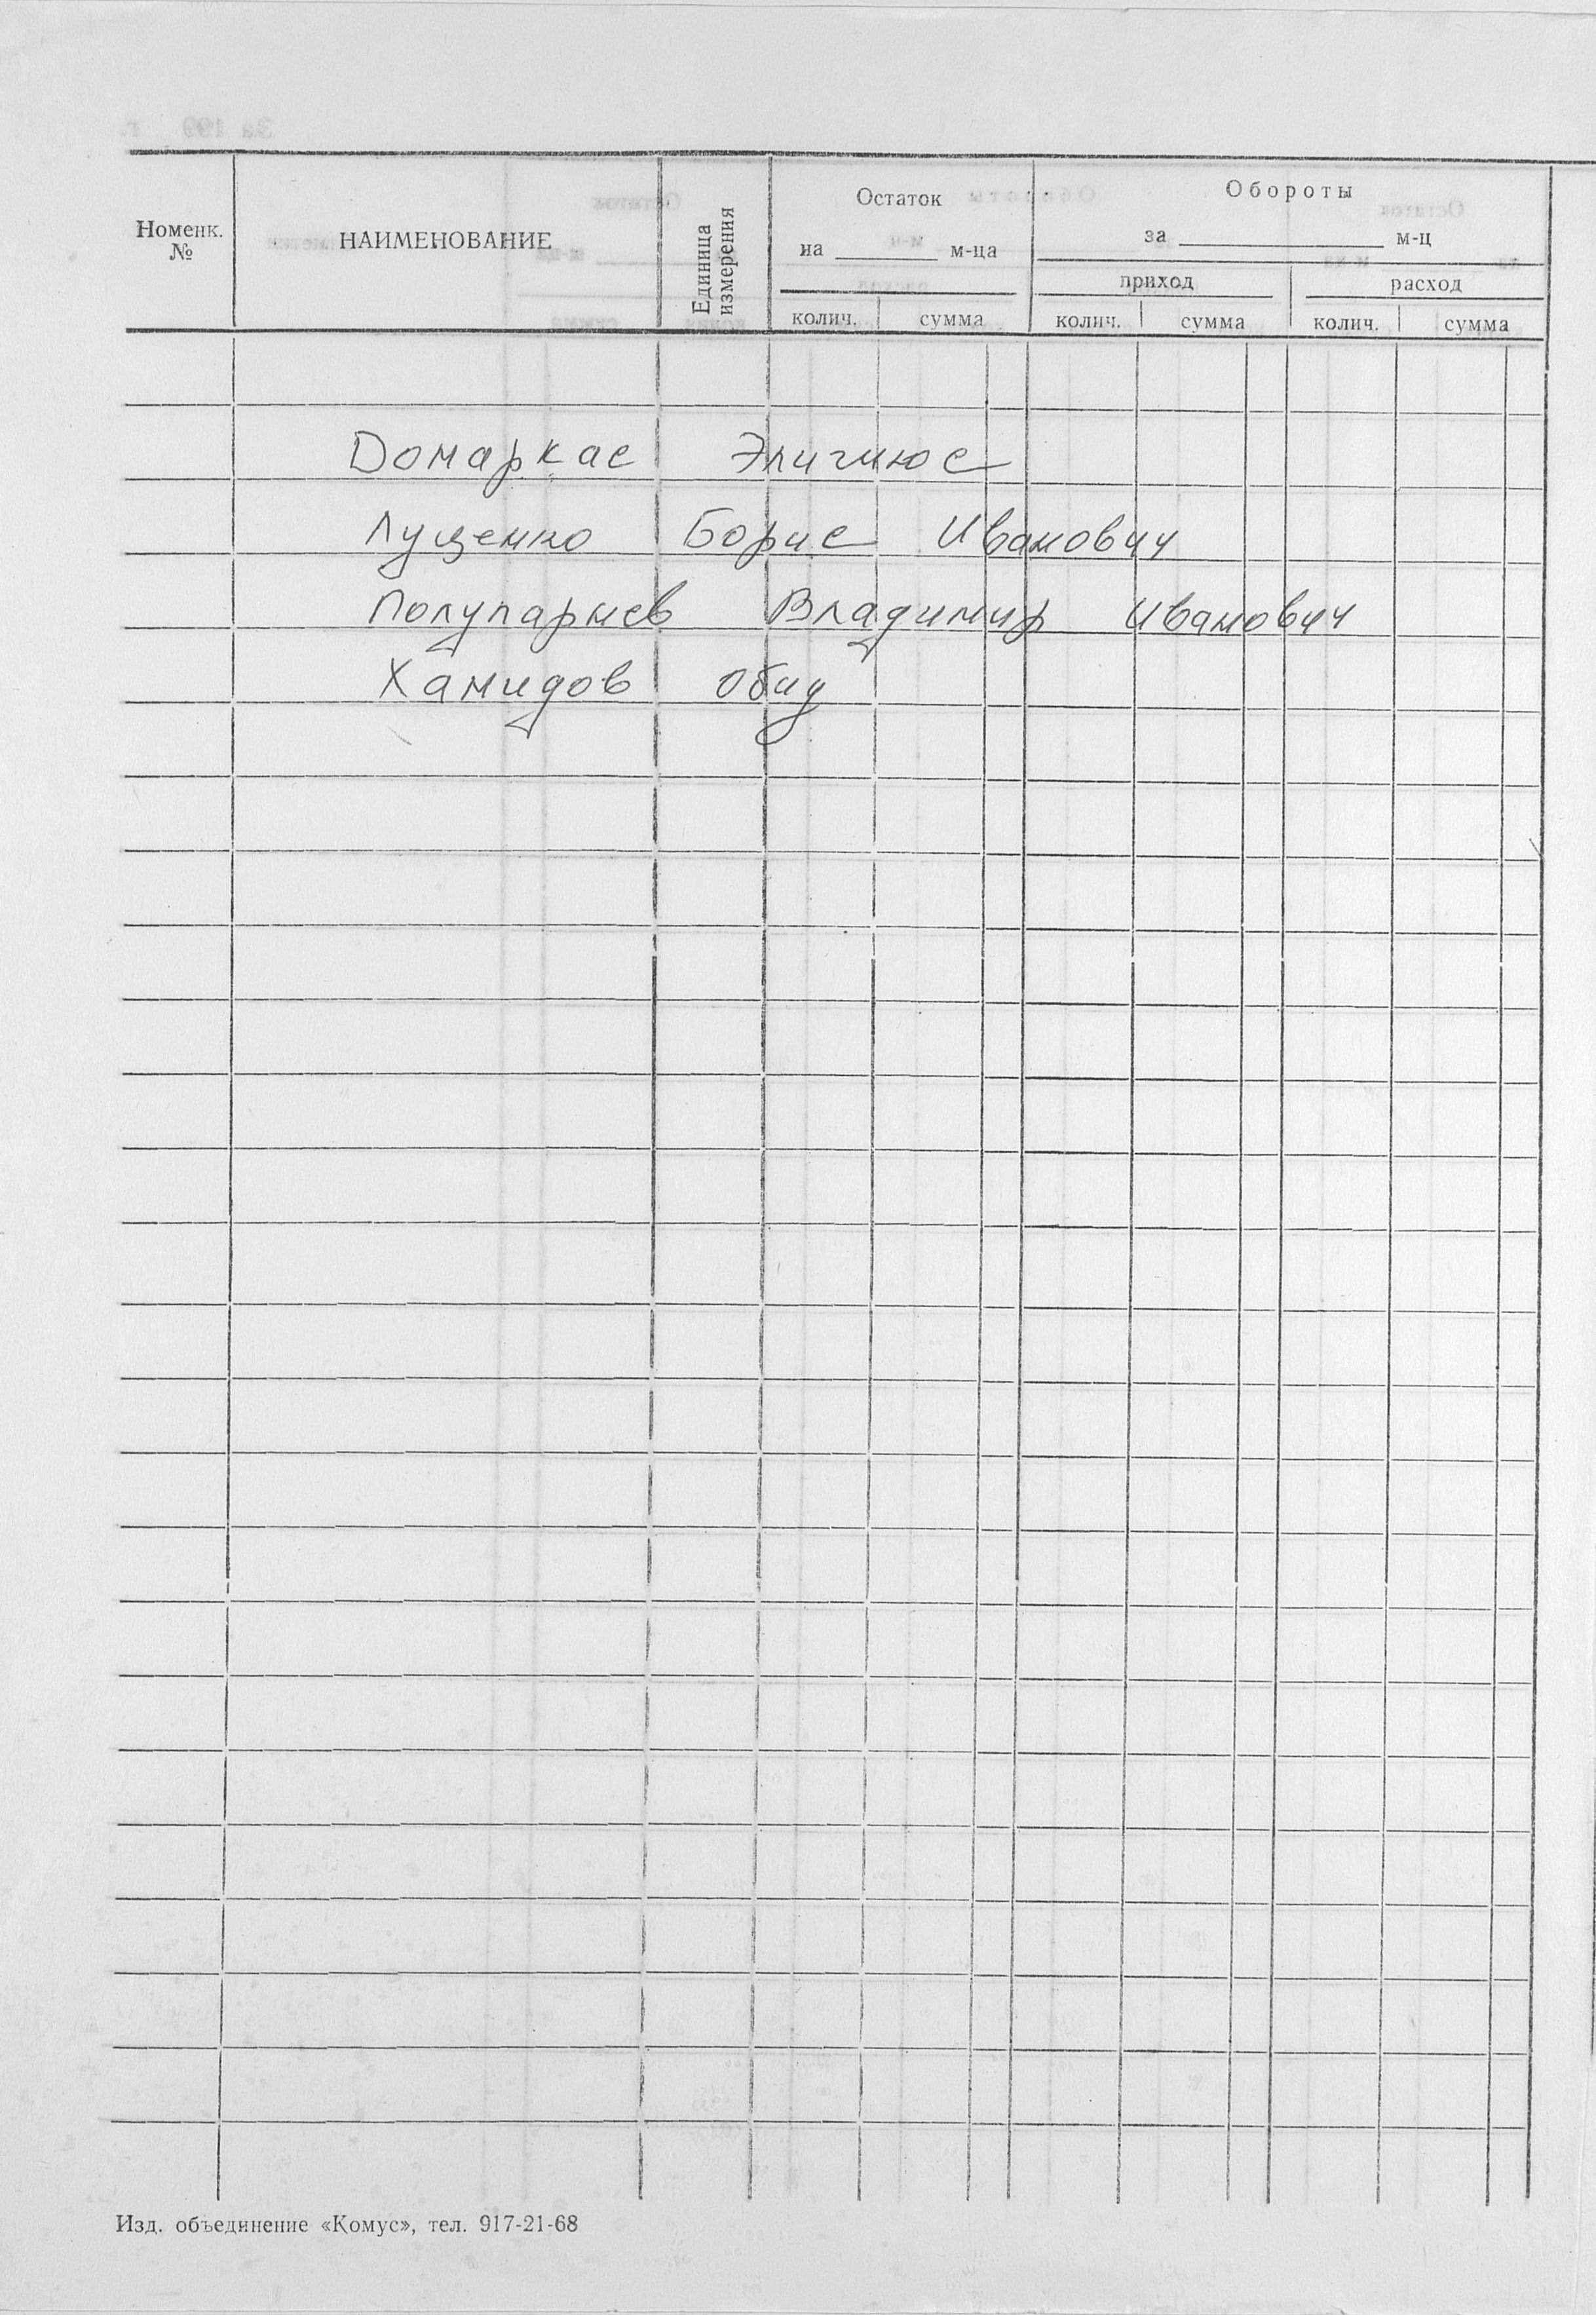 Номенк. №
НАИМЕНОВАНИЕ
Единица измерения
Остаток
на м-ца
колич. сумма
Обороты
за м-ц
приход расход
колич. сумма колич. сумма
Домаркас Элигиюс
Лущенко Борис Иванович
Полупарнев Владимир Иванович
Хамидов Обид
Изд. объединение «Комус», тел. 917-21-68